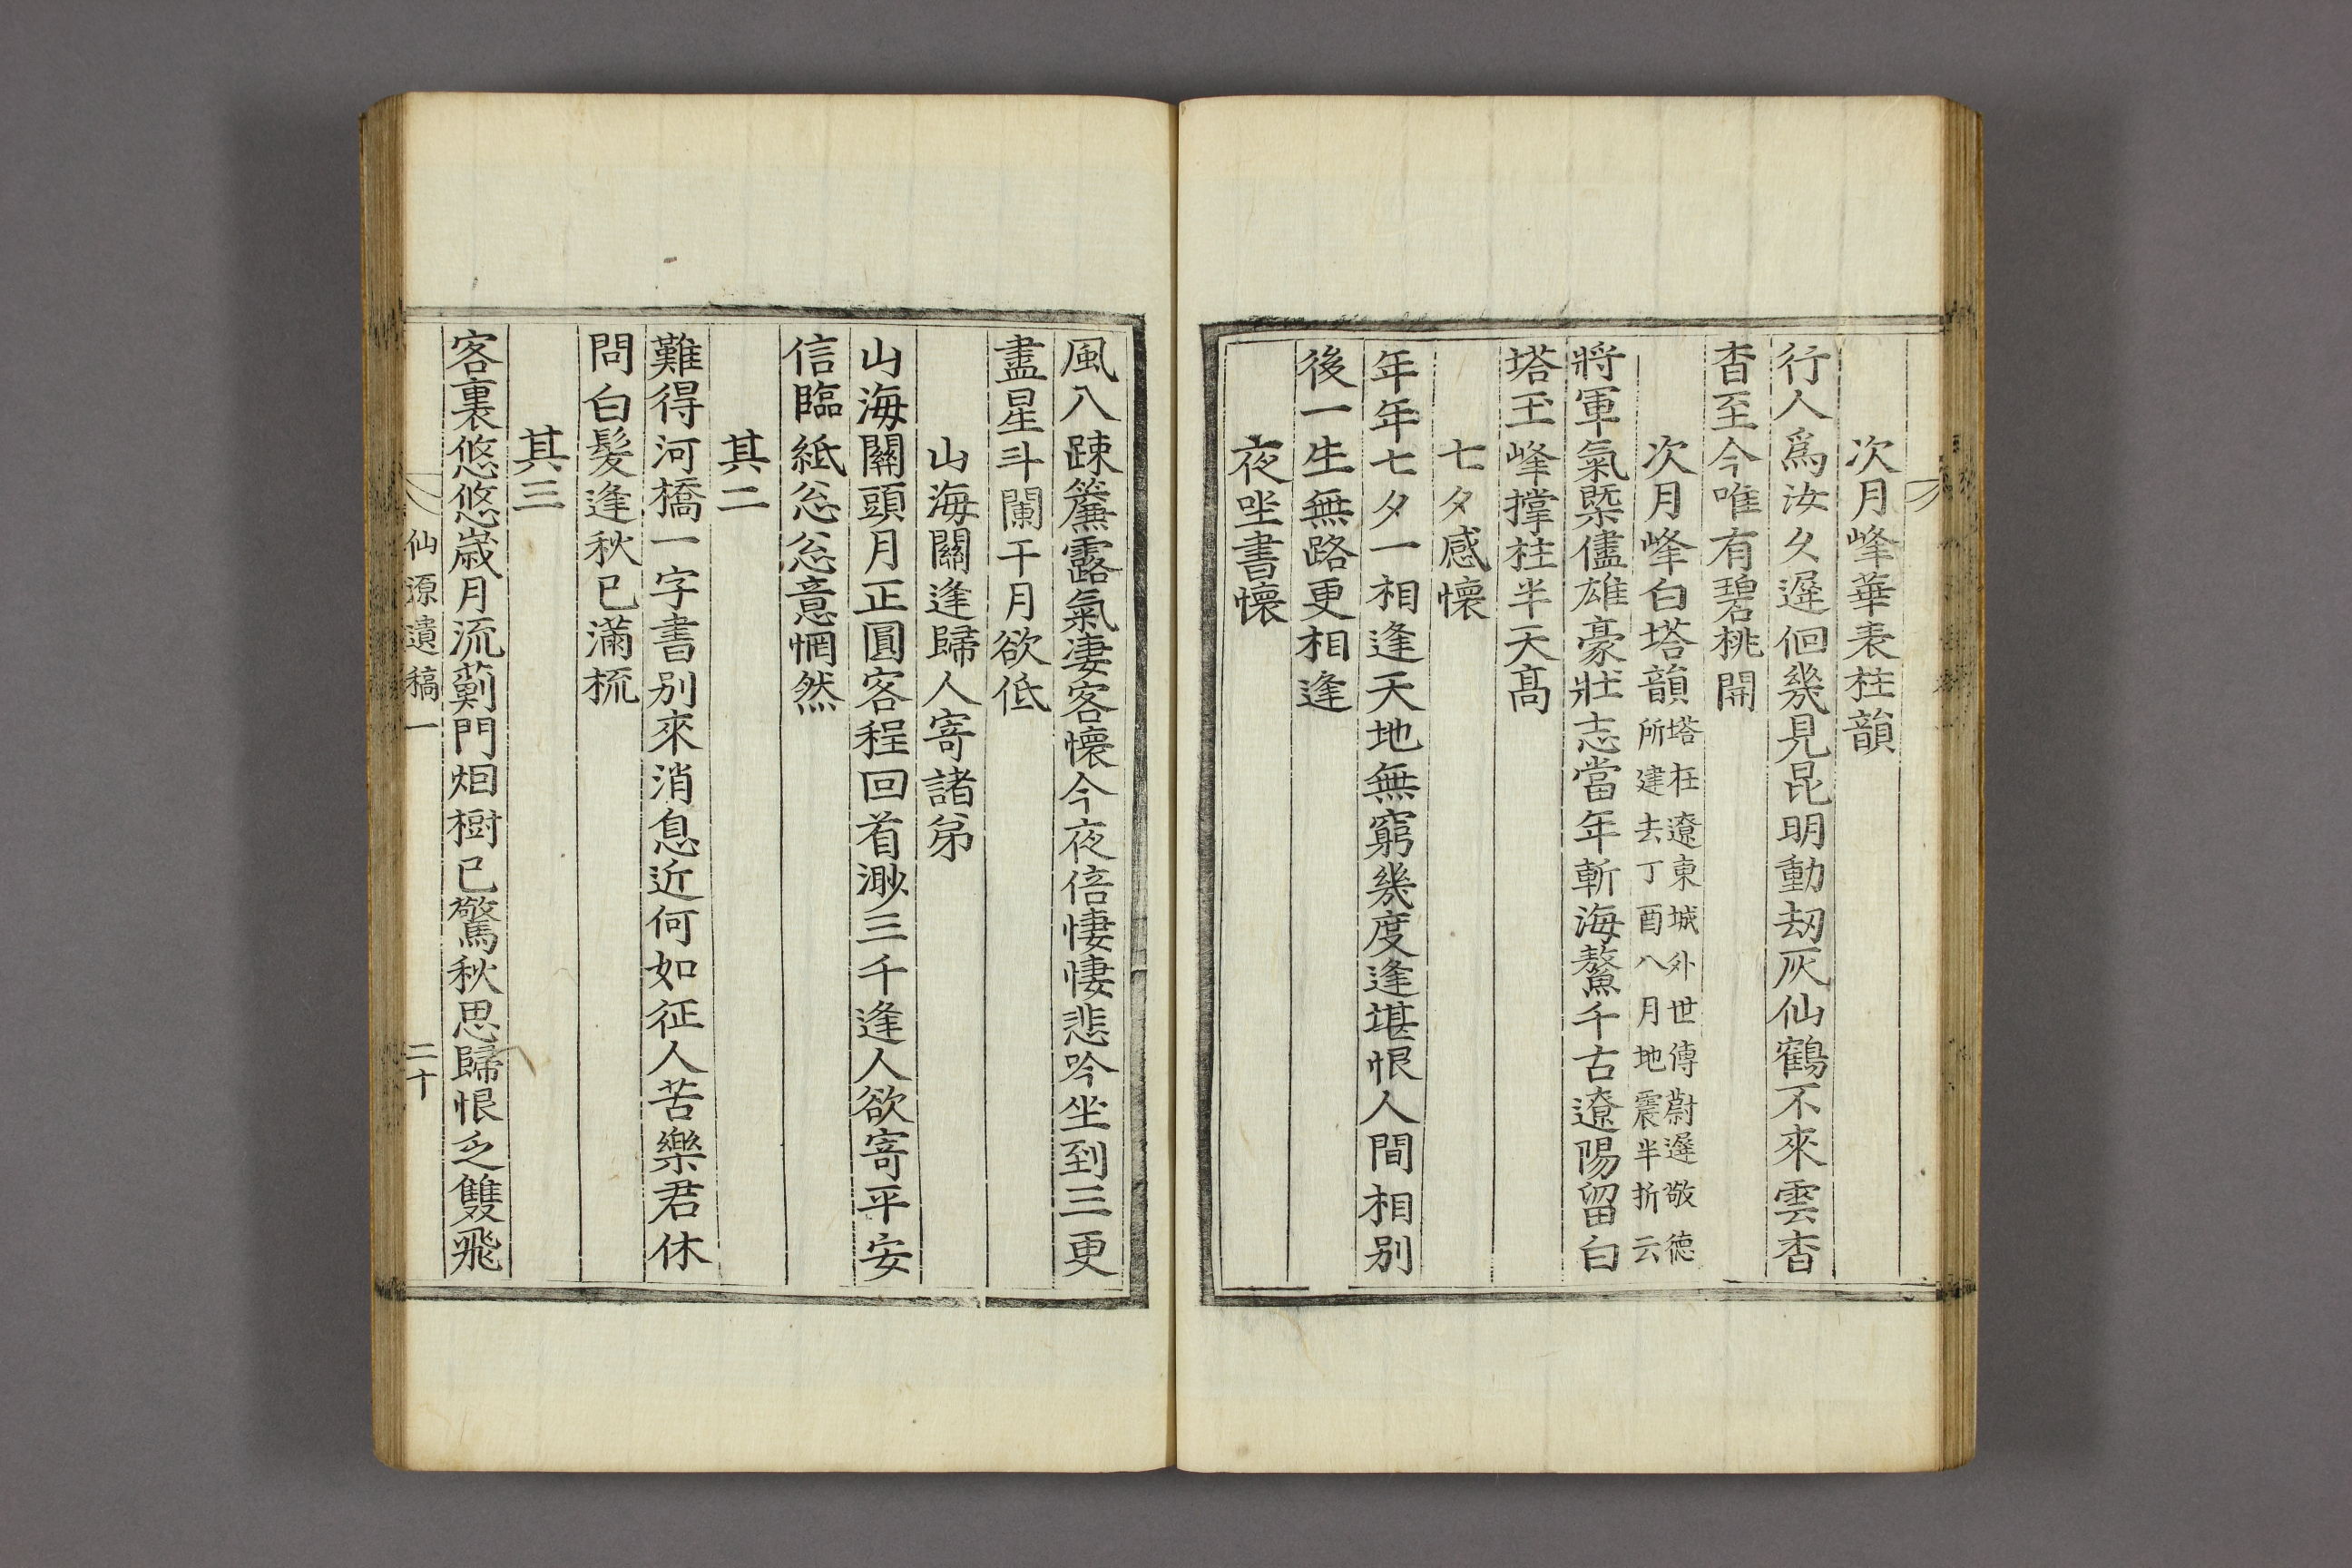 次月峰華表柱韻
行人爲汝久遲徊幾見昆明動刼灰仙鶴不來雲杳
杳至今唯有碧桃開
次月峰白塔韻塔在遼東城外世傳尉遲敬德
所建去丁酉八月地震半折云
將軍氣槩儘雄豪壯志當年斬海鰲千古遼陽留白
塔玉峰撑柱半天髙
七夕感懷
年年七夕一相逢天地無窮幾度逢堪恨人間相別
後一生無路更相逢
夜坐書懷
風入踈簾露氣凄客懷今夜倍悽悽悲吟坐到三更
盡星斗闌干月欲低
山海關逢歸人寄諸弟
山海關頭月正圓客程回首渺三千逢人欲寄平安
信臨紙忩忩意惘然
其二
難得河橋一字書別來消息近何如征人苦樂君休
問白髮逢秋已滿梳
其三
客裏悠悠歲月流薊門烟樹已驚秋思歸恨乏雙飛
仙源遺稿一 二十